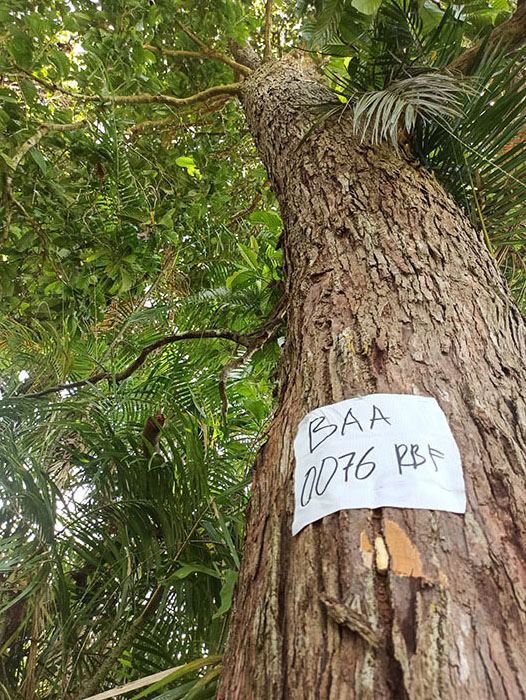 BAA
0076 RBF